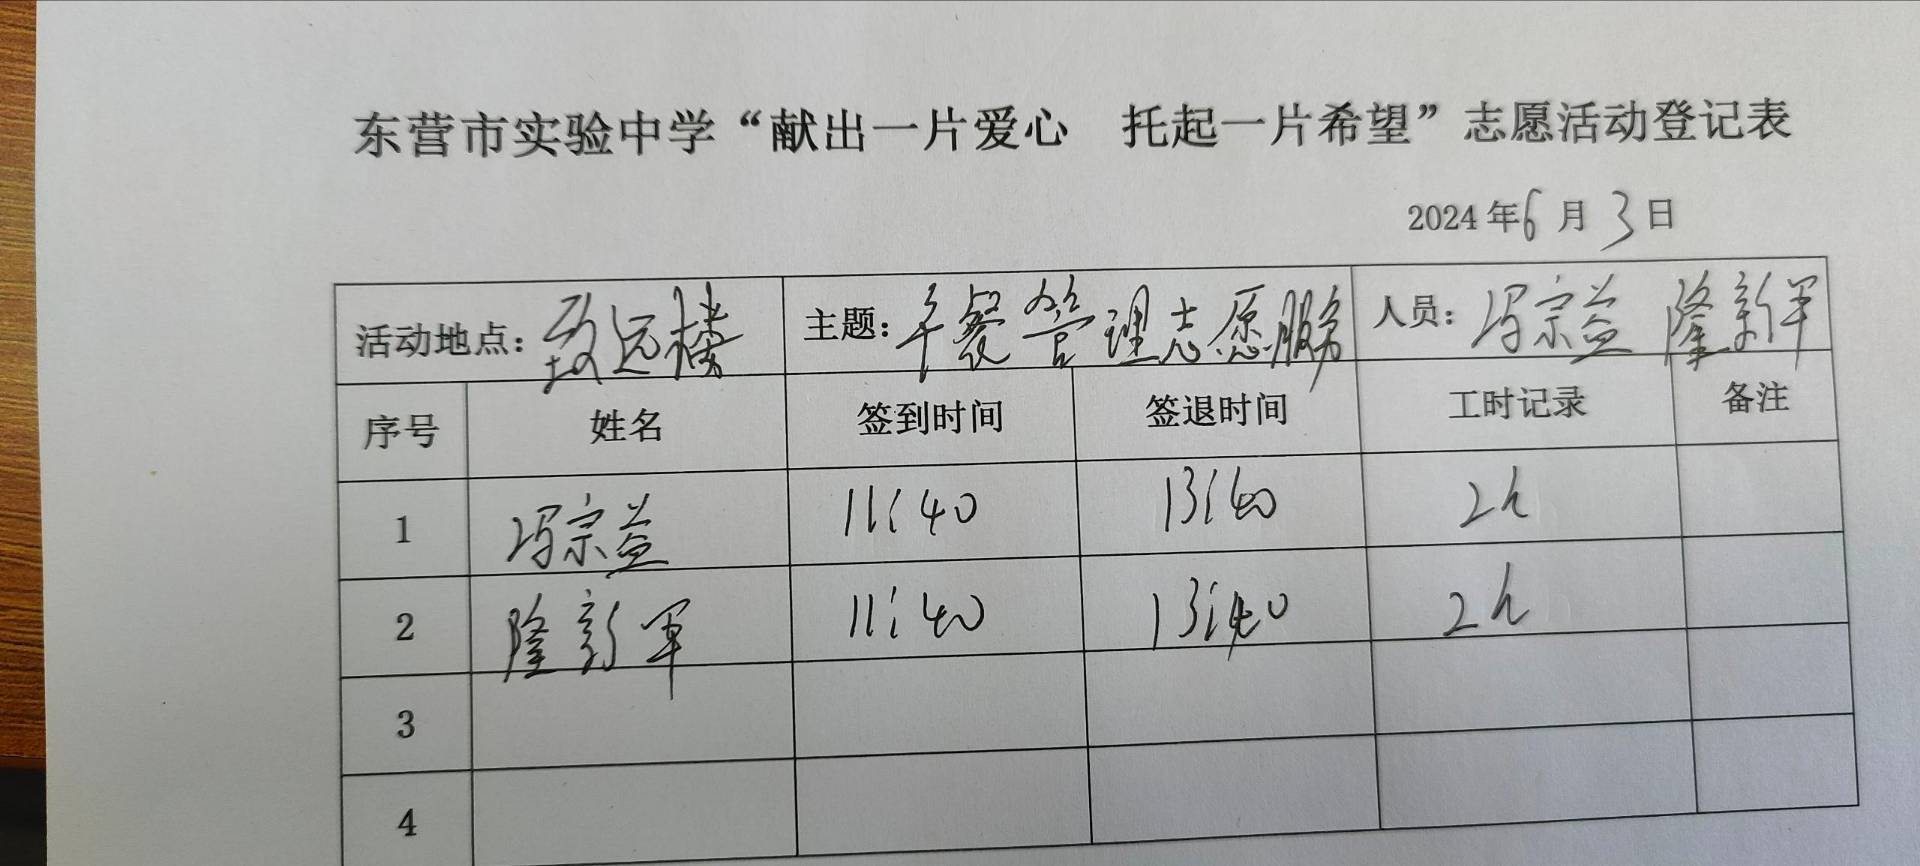 东营市实验中学“献出一片爱心 托起一片希望”志愿活动登记表
2024年6月3日
活动地点：致远楼 主题：午餐管理志愿服务 人员：冯宗益 隆新军
序号 姓名 签到时间 签退时间 工时记录 备注
1 冯宗益 11:40 13:40 2h
2 隆新军 11:40 13:40 2h
3
4